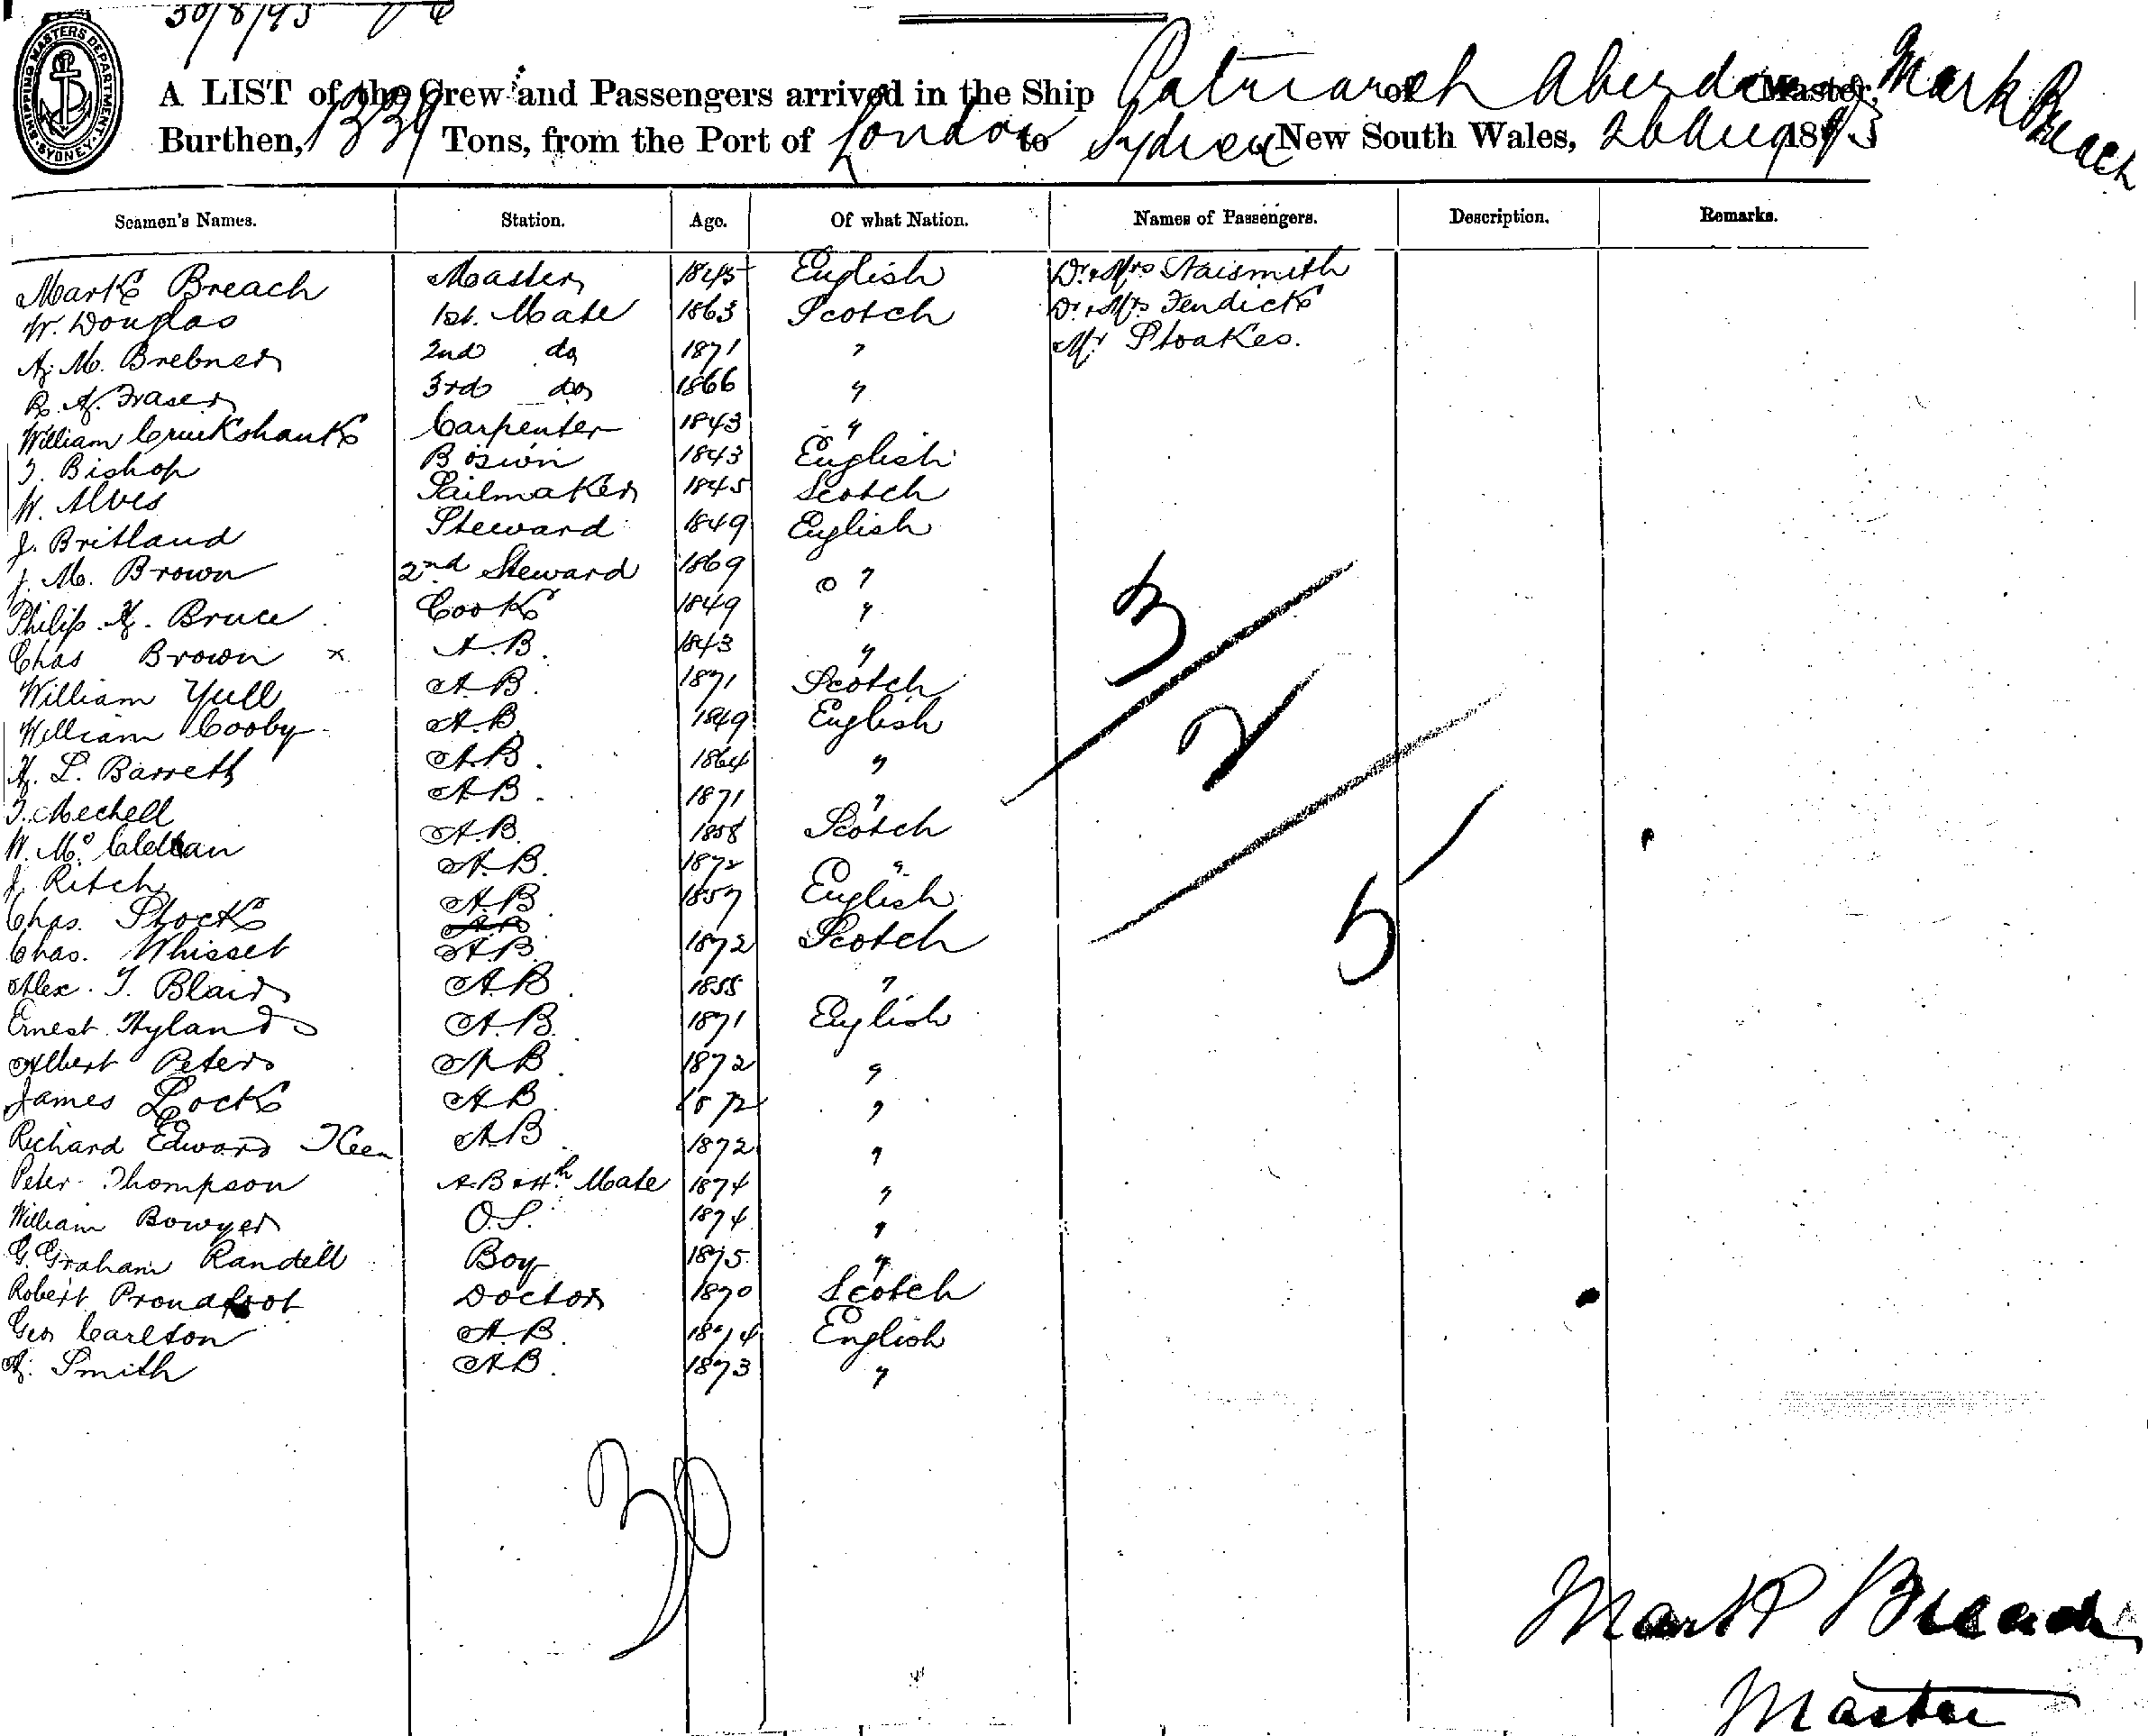 30/8/93
SHIPPING MASTERS DEPARTMENT. SYDNEY.
A LIST of the Crew and Passengers arrived in the Ship Patriarch of Aberdeen Master, Mark Breach
Burthen, 1339 Tons, from the Port of London to Sydney New South Wales, 26 Aug 1893
Seamen's Names. Station. Age. Of what Nation. Names of Passengers. Description. Remarks.
Mark Breach Master 1845 English Dr & Mrs Naismith
W. Douglas 1st. Mate 1863 Scotch Dr & Mrs Fendick
A. M. Brebner 2nd do 1871 "
R. A. Fraser 3rd do 1866 "
William Cruikshank Carpenter 1843 "
T. Bishop Boswn 1843 English
W. Alves Sailmaker 1845 Scotch
J. Britland Steward 1849 English
J. M. Brown 2nd Steward 1869 "
Philip A. Bruce Cook 1849 "
Chas Brown x A.B. 1843 "
William Yull A.B. 1871 Scotch
William Cooby A.B. 1849 English
L. Barrett A.B. 1864 "
T. Mechell A.B. 1871 "
W. Mc Clellan A.B. 1858 Scotch
J. Ritch A.B. 1872 "
Chas. Stock A.B. 1857 English
Chas. Whisset A.B. 1872 Scotch
Alex. T. Blair A.B. 1855 "
Ernest Hyland A.B. 1871 English
Albert Peters A.B. 1872 "
James Lock A.B. 1872 "
Richard Edward Keen A.B. 1872 "
Peter Thompson A.B & 4th Mate 1874 "
William Bowyer O.S. 1874 "
G. Graham Randell Boy 1875 "
Robert Proudfoot Doctor 1870 Scotch
Geo Carlton A.B. 1874 English
A. Smith A.B. 1873 "
Mr Stoakes.
3
2
5
30
Mark Breach
Master